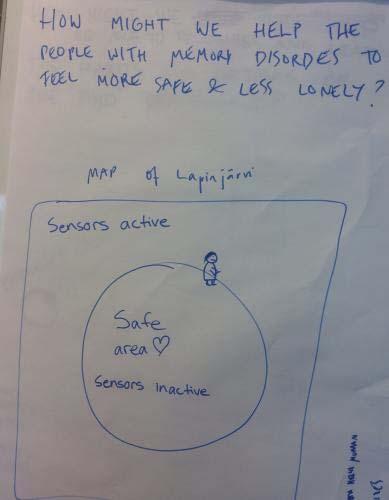 HOW MIGHT WE HELP THE
PEOPLE WITH MEMORY DISORDES TO
FEEL MORE SAFE & LESS LONELY?
MAP of Lapinjärvi
Sensors active
Safe
area ♡
Sensors inactive